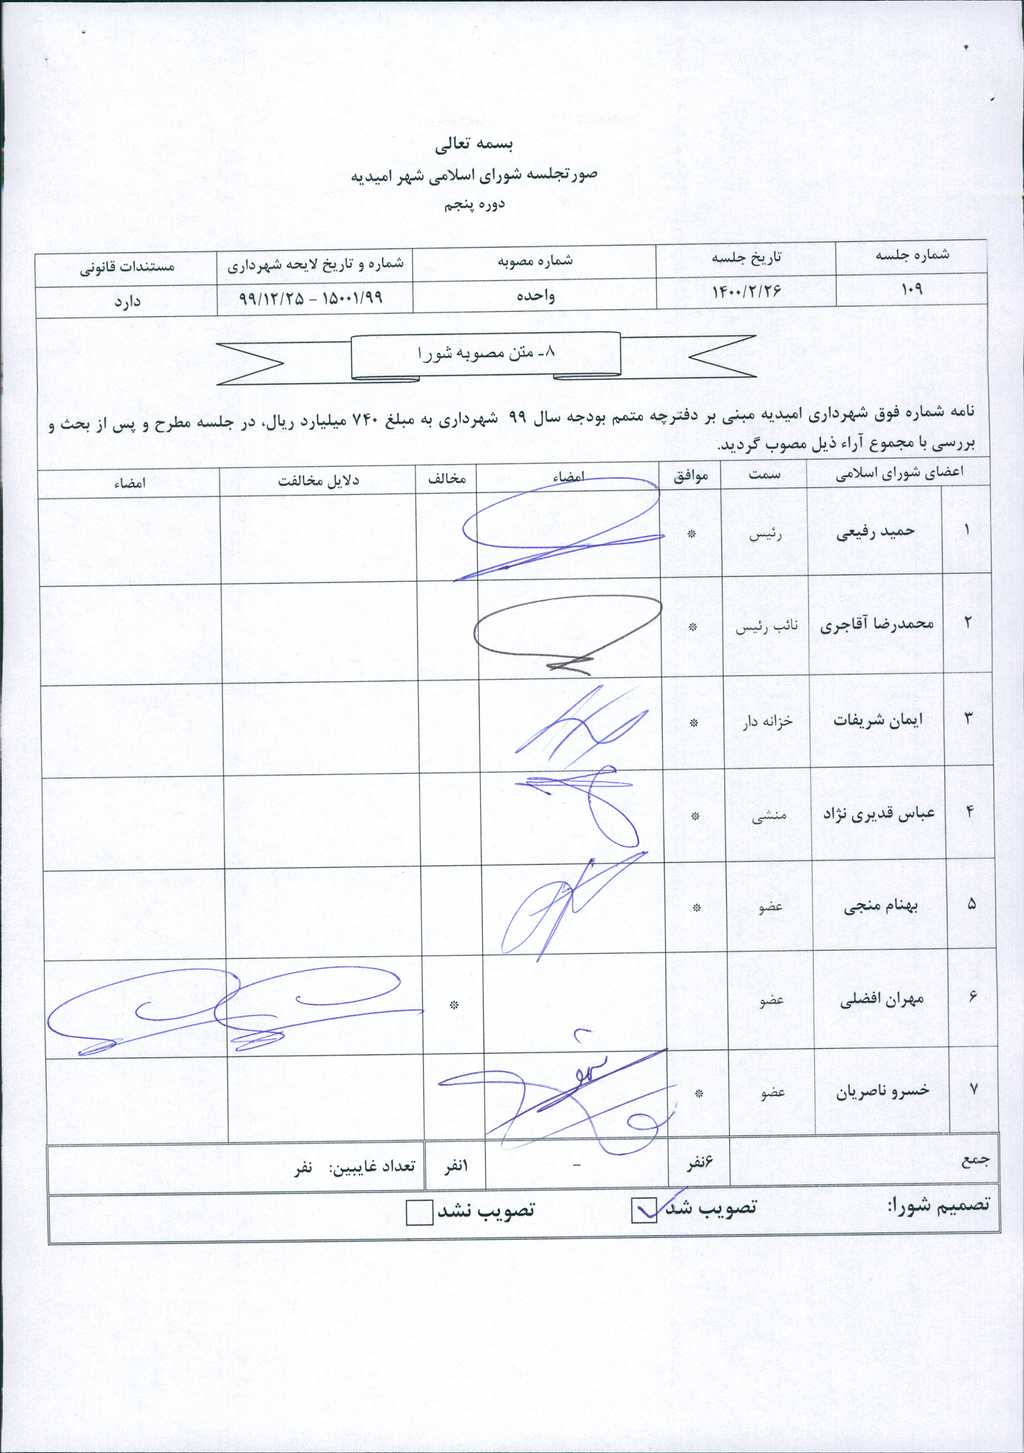 بسمه تعالی
صورتجلسه شورای اسلامی شهر امیدیه
دوره پنجم
شماره جلسه تاریخ جلسه شماره مصوبه شماره و تاریخ لایحه شهرداری مستندات قانونی
۱۰۹ ۱۴۰۰/۲/۲۶ واحده ۱۵۰۰۱/۹۹ – ۹۹/۱۲/۲۵ دارد
۸ـ متن مصوبه شورا
نامه شماره فوق شهرداری امیدیه مبنی بر دفترچه متمم بودجه سال ۹۹ شهرداری به مبلغ ۷۴۰ میلیارد ریال، در جلسه مطرح و پس از بحث و
بررسی با مجموع آراء ذیل مصوب گردید.
اعضای شورای اسلامی سمت موافق امضاء مخالف دلایل مخالفت امضاء
۱ حمید رفیعی رئیس *
۲ محمدرضا آقاجری نائب رئیس *
۳ ایمان شریفات خزانه دار *
۴ عباس قدیری نژاد منشی *
۵ بهنام منجی عضو *
۶ مهران افضلی عضو *
۷ خسرو ناصریان عضو *
جمع ۶نفر – ۱نفر تعداد غایبین: نفر
تصمیم شورا: تصویب شد تصویب نشد